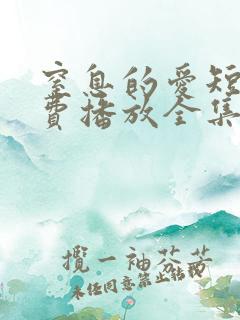 窒息的爱短
费播放全集
揽一袖芬芳
未经同意禁止转载